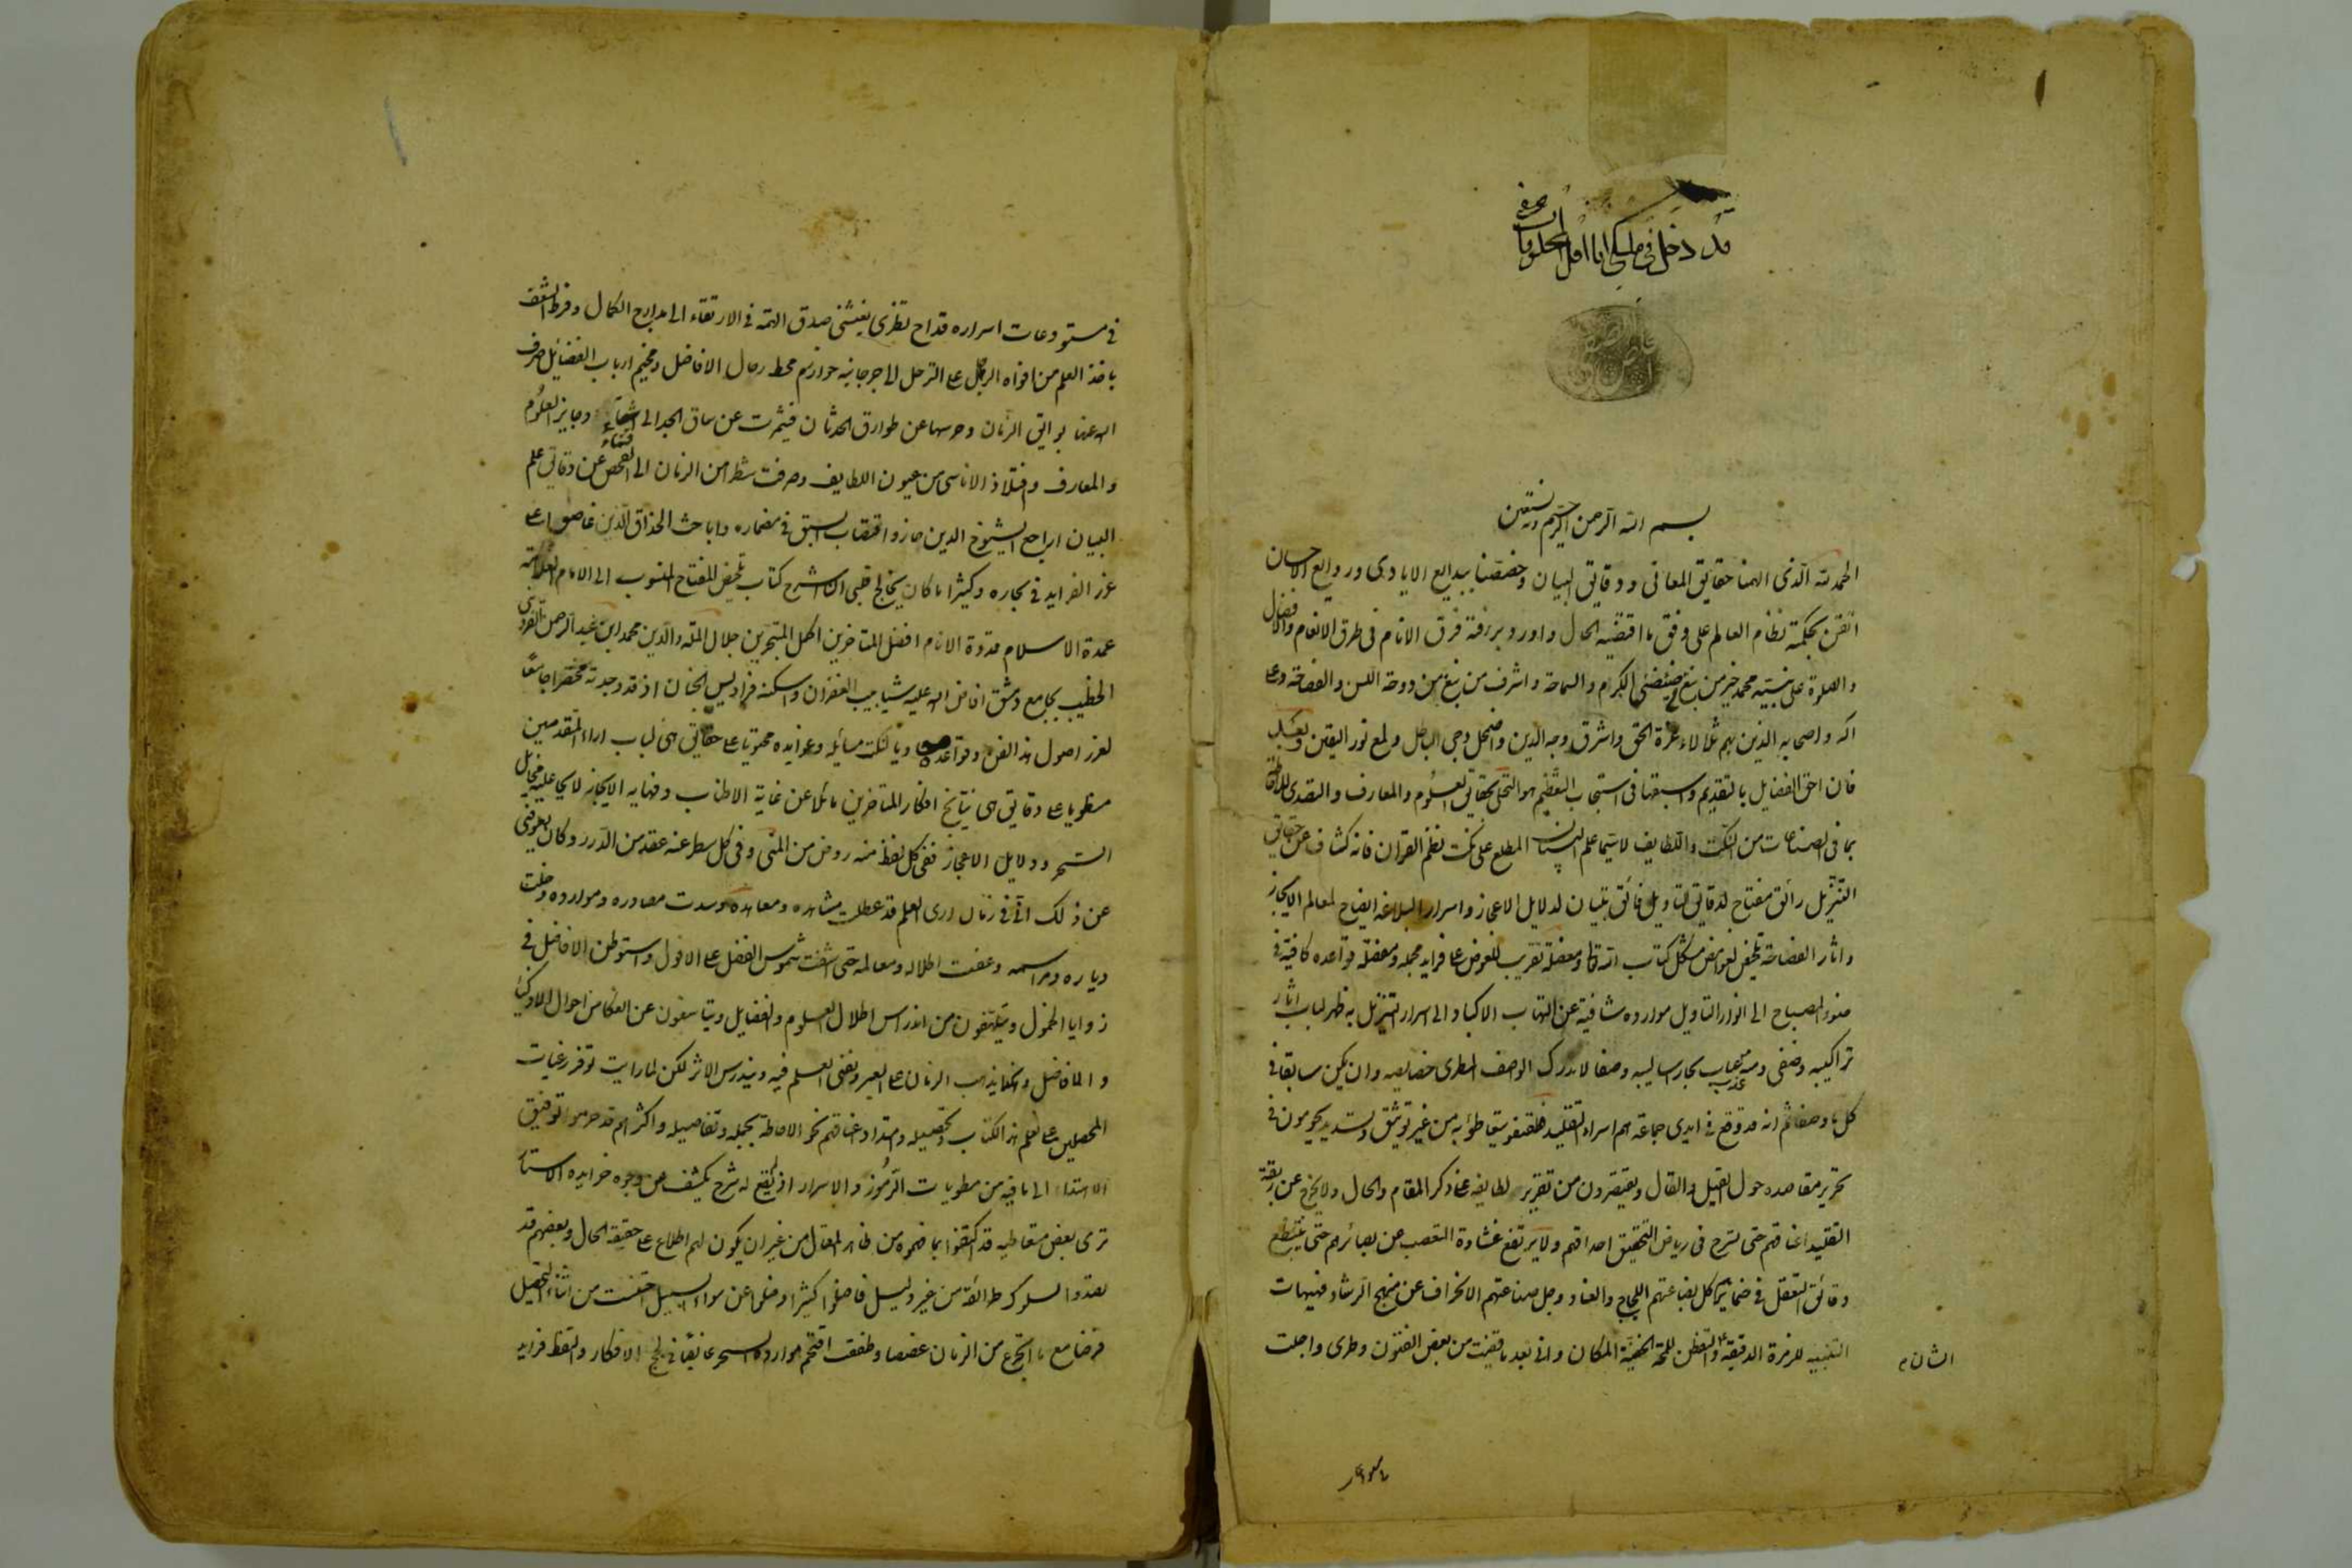 قد دخل في ملكي انا اقل المخلوقات
بسم الله الرحمن الرحيم وبه نستعين
الحمد لله الذي الهمنا حقايق المعاني ودقايق البيان وخصصنا ببدايع الايادي وروايع الاحسان
اتقن بحكمته نظام العالم على وفق ما اقتضيه الحال واورد برزقه فرق الانام في طرق الانعام والافضال
والصلوة على نبيه محمد خير من نبغ من ضئضئ الكرم والسماحة واشرف من نبغ من دوحة اللسن والفصاحة وعلى
اله واصحابه الذين بهم تلألاء غرة الحق واشرق وجه الدين واضمحل دجى الباطل ولمع نور اليقين وبعد
فان احق الفضايل بالتقديم واسبقها في استيجاب التعظيم هو التحلي بحقايق العلوم والمعارف والتصدي للاحاطة
بما في الصناعات من النكت واللطايف لا سيما علم البيان المطلع على نكت نظم القران فانه كشاف عن حقايق
التنزيل رائق مفتاح لدقايق التاويل فائق تبيان لدلايل الاعجاز واسرار البلاغة ايضاح لمعالم الايجاز
واثار الفصاحة تلخيص لغوامض مشكل كتاب الله تعا ومعضله تقريب للغوص على فرايد مجمله ومفصله قواعده كافية في
ضوء المصباح الى انوار التاويل موارده شافية عن التهاب الاكباد الى اسرار التنزيل به ظهر لباب اثار
تراكيبه وصفى ومنه عباب بحار اساليبه وصفا لا يدرك الواصف المطري خصايصه وان يكن سابقا في
كل ما وصفا ثم انه قد وقع في ايدي جماعة هم اسراء التقليد فطفقوا يتعاطونه من غير توثيق وتسديد يحومون في
تحرير مقاصده حول القيل والقال ويقتصرون من تقرير لطايفه على ذكر المقام والحال ولا يخرج عن ربقة
التقليد اعناقهم حتى تسرح في رياض التحقيق احداقهم ولا يرتفع غشاوة التعصب عن بصائرهم حتى ينطبع
دقائق التعقل في ضمائرهم كل بضاعتهم اللجاج والعناد وجل صناعتهم الانحراف عن منهج الرشاد فهيهات
التنبيه للرمزة الدقيقة والتفطن للمحة الخفية المكان واني بعد ما قضيت من بعض الفنون وطري واجلت
الشان
في مستودعات اسراره قداح نظري بعثني صدق الهمة في الارتقاء الى مدارج الكمال وفرط الشغف
باخذ العلم من افواه الرجال على الترحل الى جرجانية خوارزم محط رحال الافاضل ومخيم ارباب الفضائل صرف
الله عنها بوائق الزمان وحرسها عن طوارق الحدثان فشمرت عن ساق الجد الى اقتناء ذخاير العلوم
والمعارف وافتلاذ الاناسي من عيون اللطايف وصرفت شطرا من الزمان الى الفحص عن دقايق علم
البيان اراجع الشيوخ الذين حازوا قصاب السبق في مضماره واباحث الحذاق الذين غاصوا على
غرر الفرايد في بحاره وكثيرا ما كان يخالج قلبي ان اشرح كتاب تلخيص المفتاح المنسوب الى الامام العلامة
عمدة الاسلام قدوة الانام افضل المتاخرين اكمل المتبحرين جلال الملة والدين محمد ابن عبد الرحمن القزويني
الخطيب بجامع دمشق افاض الله عليه شابيب الغفران واسكنه فراديس الجنان اذ قد وجدته مختصرا جامعا
لغرر اصول هذا الفن وقواعده حاويا لنكت مسائله وعوايده محتويا على حقايق هي لباب اراء المتقدمين
منطويا على دقايق هي نتايج افكار المتاخرين مائلا عن غاية الاطناب ونهاية الايجاز لايحا عليه مخايل
السحر ودلايل الاعجاز ففي كل لفظ منه روض من المنى وفي كل سطر منه عقد من الدرر وكان يعوقني
عن ذلك اني في زمان ارى العلم قد عطلت مشاهده ومعاهده وسدت مصادره وموارده وخلت
دياره ومراسمه وعفت اطلاله ومعالمه حتى اشفت شموس الفضل على الافول واستوطن الافاضل في
زوايا الخمول ويتلهفون من اندراس اطلال العلوم والفضايل ويتاسفون عن انعكاس احوال الاذكياء
والافاضل وهكذا يذهب الزمان على العبر ويفنى العلم فيه ويندرس الاثر لكن لما رايت توفر رغبات
المحصلين على تعلم هذا الكتاب وتحصيله وامتداد اعناقهم نحو الاحاطة بجمله وتفاصيله واكثرهم قد حرموا توفيق
الاهتداء الى ما فيه من مطويات الرموز والاسرار اذ لم يقع له شرح يكشف عن وجوه خرايده الاستار
ترى بعض متعاطيه قد اكتفوا بما فهموه من ظاهر المقال من غير ان يكون لهم اطلاع على حقيقة الحال وبعضهم قد
تصدوا لسلوك طرائقه من غير دليل فاضلوا كثيرا وضلوا عن سواء السبيل اختلست من اثناء التحصيل
فرضا مع ما اتجرع من الزمان غصصا وطفقت اقتحم موارد السهر غائصا في لجج الافكار والتقط فرايد